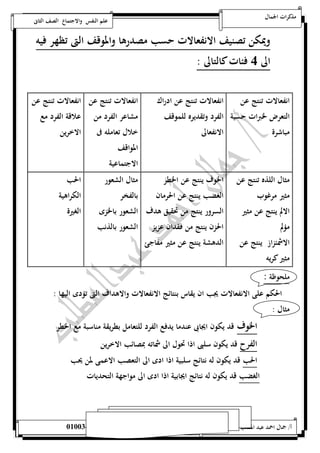 مذكرات الجمال
علم النفس والاجتماع الصف الثانى
ويمكن تصنيف الانفعالات حسب مصدرها والموقف التى تظهر فيه
الى 4 فئات كالتالى :
انفعالات تنتج عن
التعرض لخبرات حسية
مباشرة
انفعالات تنتج عن ادراك
الفرد وتقديره للموقف
الانفعالى
انفعالات تنتج عن
مشاعر الفرد من
خلال تعامله فى
المواقف
الاجتماعية
انفعالات تنتج عن
علاقة الفرد مع
الاخرين
مثال اللذه تنتج عن
مثير مرغوب
الالم ينتج عن مثير
مؤلم
الاشمئزاز ينتج عن
مثير كريه
الخوف ينتج عن الخطر
الغضب ينتج عن الحرمان
السرور ينتج من تحقيق هدف
الحزن ينتج من فقدان عزيز
الدهشة ينتج عن مثير مفاجئ
مثال الشعور
بالفخر
الشعور بالخزى
الشعور بالذنب
الحب
الكراهية
الغيرة
ملحوظة :
الحكم على الانفعالات يجب ان يقاس بنتائج الانفعالات والاهداف التى تؤدى اليها :
مثال :
الخوف قد يكون ايجابى عندما يدفع الفرد للتعامل بطريقة مناسبة مع الخطر
الفرح قد يكون سلبى اذا تحول الى شماته بمصائب الاخرين
الحب قد يكون له نتائج سلبية اذا ادى الى التعصب الاعمى لمن يحب
الغضب قد يكون له نتائج ايجابية اذا ادى الى مواجهة التحديات
أ/ جمال احمد عبد
01003